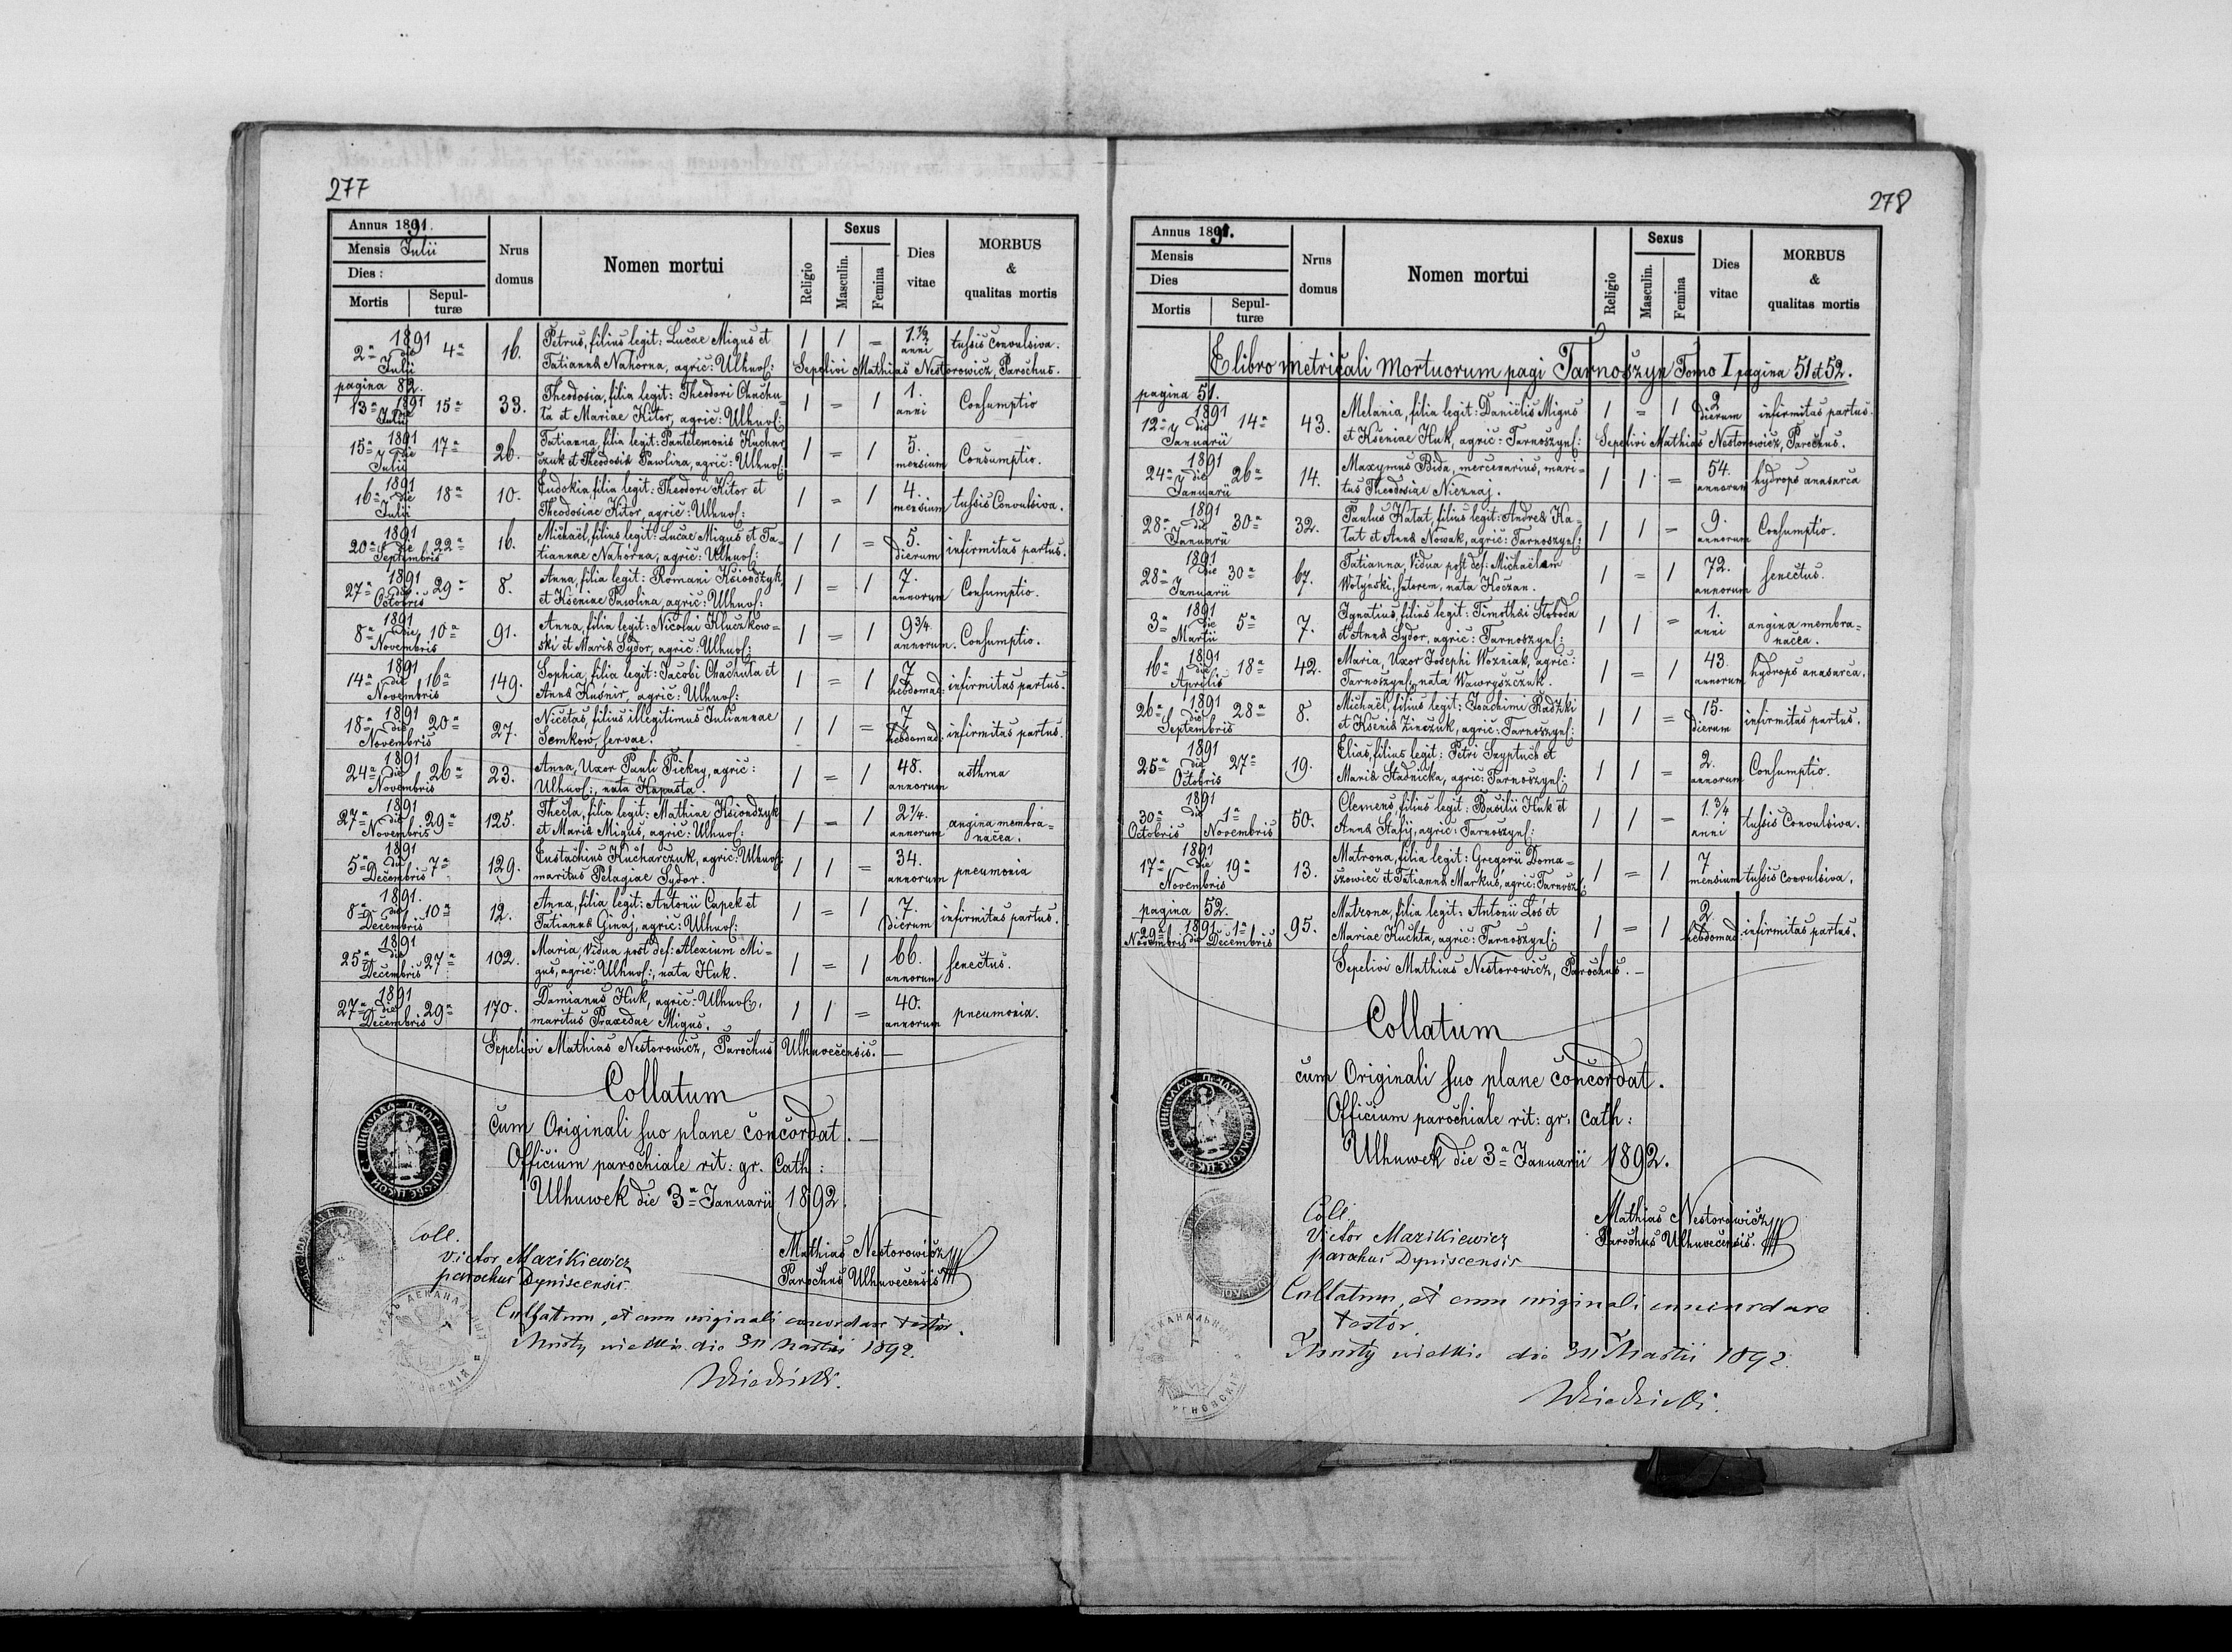 277
Annus 1891.
Mensis Julii
Dies:
Mortis
Sepulturæ
Nrus domus
Nomen mortui
Religio
Sexus
Masculin.
Femina
Dies vitae
MORBUS & qualitas mortis
1891
2ª die 4ª 16. Petrus, filius legit: Lucae Migus et 1 1 = 1.½ tussis convulsiva.
Julii Tatianna Nahorna, agric: Ulhuv: anni
Sepelivi Mathias Nestorowicz, Parochus.
pagina 82.
13ª 1891 15ª 33. Theodosia, filia legit: Theodori Chachu- 1 = 1 1. Consumptio
Julii ta et Mariae Kitor, agric: Ulhuv: anni
1891
15ª die 17ª 26. Tatianna, filia legit: Pantelemonis Kuchar 1 = 1 5. Consumptio.
Julii czuk et Theodosia Pawlina, agric: Ulhuv: mensium
1891
16ª die 18ª 10. Eudokia, filia legit: Theodori Kitor et 1 = 1 4. tussis Convulsiva.
Julii Theodosiae Kitor, agric: Ulhuv: mensium
1891
20ª die 22ª 16. Michaël, filius legit: Lucae Migus et Ta- 1 1 = 5. infirmitas partus.
Septembris tiannae Nahorna, agric: Ulhuv: dierum
1891
27ª die 29ª 8. Anna, filia legit: Romani Ksiondzyk 1 = 1 7. Consumptio.
Octobris et Kseniae Pawlina, agric: Ulhuv: annorum
1891
8ª die 10ª 91. Anna, filia legit: Nicolai Kluczkow- 1 = 1 9¾ Consumptio.
Novembris ski et Maria Sydor, agric: Ulhuv: annorum.
1891
14ª die 16ª 149. Sophia, filia legit: Jacobi Chachuta et 1 = 1 7 infirmitas partus.
Novembris Anna Kusnir, agric: Ulhuv: hebdomad:
1891
18ª die 20ª 27. Nicetas, filius illegitimus Juliannae 1 1 = 7 infirmitas partus.
Novembris Semkow, servae. hebdomad:
1891
24ª die 26ª 23. Anna, Uxor Pauli Piekny, agric: 1 = 1 48. asthma
Novembris Ulhuv:, nata Kapusta. annorum
1891
27ª die 29ª 125. Thecla, filia legit: Mathiae Ksiondzyk 1 = 1 2¼. angina membra-
Novembris et Maria Migus, agric: Ulhuv: annorum nacea.
1891
5ª die 7ª 129. Eustachius Kucharczuk, agric: Ulhuv: 1 1 = 34. pneumonia
Decembris maritus Pelagiae Sydor. annorum
1891.
8ª die 10ª 12. Anna, filia legit: Antonii Capek et 1 = 1 7. infirmitas partus.
Decembris Tatianna Ginaj, agric: Ulhuv: dierum
1891
25ª die 27ª 102. Maria, Vidua post def: Alexium Mi- 1 = 1 66. senectus.
Decembris gus, agric: Ulhuv:, nata Huk. annorum
1891
27ª die 29ª 170. Damianus Huk, agric: Ulhuv:, 1 1 = 40. pneumonia.
Decembris maritus Praxedae Migus. annorum
Sepelivi Mathias Nestorowicz, Parochus Ulhuvecensis. —
Collatum
Cum Originali suo plane concordat. —
Officium parochiale rit: gr. Cath:
Ulhuwek die 3ª Januarii 1892.
Coll.
Victor Mazikiewicz
parochus Dyniscensis.
Mathias Nestorowicz
Parochus Ulhuvecensis
Collatum, et cum originali concordare testor.
die 30 Martii 1892.
278
Annus 1891.
Mensis
Dies
Mortis
Sepulturæ
Nrus domus
Nomen mortui
Religio
Sexus
Masculin.
Femina
Dies vitae
MORBUS & qualitas mortis
E libro metricali Mortuorum pagi Tarnoszyn Tomo I pagina 51 et 52.
pagina 51.
1891
12ª die 14ª 43. Melania, filia legit: Daniëlis Migus 1 = 1 2 infirmitas partus.
Januarii et Kseniae Huk, agric: Tarnoszyn: dierum
Sepelivi Mathias Nestorowicz, Parochus.
1891
24ª die 26ª 14. Maxymus Bida, mercenarius, mari- 1 1 = 54. hydrops anasarca
Januarii tus Theodosiae Nieznaj. annorum
1891
28ª die 30ª 32. Paulus Katat, filius legit: Andrea Ka- 1 1 = 9. Consumptio.
Januarii tat et Anna Nowak, agric: Tarnoszyn: annorum
1891
28ª die 30ª 67. Tatianna, Vidua post def: Michaëlem 1 = 1 72. senectus.
Januarii Wołyński, sutorem, nata Koczan. annorum
1891
3ª die 5ª 7. Ignatius, filius legit: Timothei Słoboda 1 1 = 1. angina membra-
Martii et Anna Sydor, agric: Tarnoszyn: anni nacea.
1891
16ª die 18ª 42. Maria, Uxor Josephi Wozniak, agric: 1 = 1 43. hydrops anasarca.
Aprilis Tarnoszyn:, nata Wawryszczuk. annorum
1891
26ª die 28ª 8. Michaël, filius legit: Joachimi Radzki 1 1 = 15. infirmitas partus.
Septembris et Ksenia Zinczuk, agric: Tarnoszyn: dierum
1891
25ª die 27ª 19. Elias, filius legit: Petri Szyptuch et 1 1 = 2. Consumptio.
Octobris Maria Stadnicka, agric: Tarnoszyn: annorum
1891
30ª die 1ª 50. Clemens, filius legit: Basilii Huk et 1 1 = 1.¾ tussis Convulsiva.
Octobris Novembris Anna Stafij, agric: Tarnoszyn: anni
1891
17ª die 19ª 13. Matrona, filia legit: Gregorii Doma- 1 = 1 7 tussis Convulsiva.
Novembris szowiec et Tatianna Markus, agric: Tarnosz: mensium
pagina 52.
29ª 1891 1ª 95. Matrona, filia legit: Antonii Łoś et 1 = 1 2. infirmitas partus.
Novembris die Decembris Mariae Kuchta, agric: Tarnoszyn: hebdomad:
Sepelivi Mathias Nestorowicz, Parochus. —
Collatum
cum Originali suo plane concordat.
Officium parochiale rit: gr: Cath:
Ulhuwek die 3ª Januarii 1892.
Coll.
Victor Mazikiewicz
parochus Dyniscensis
Mathias Nestorowicz
Parochus Ulhuvecensis.
Collatum, et cum originali concordare
testor.
die 30 Martii 1892.